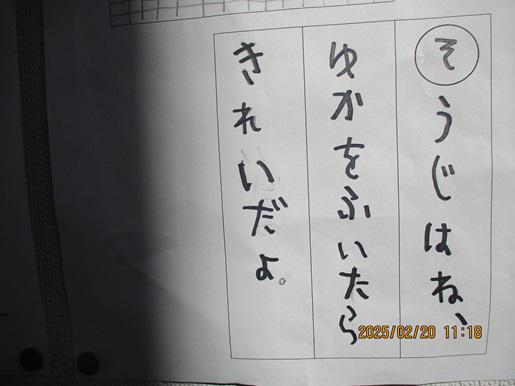 そうじはね、
ゆかをふいたら
きれいだよ。
2025/02/20 11:18